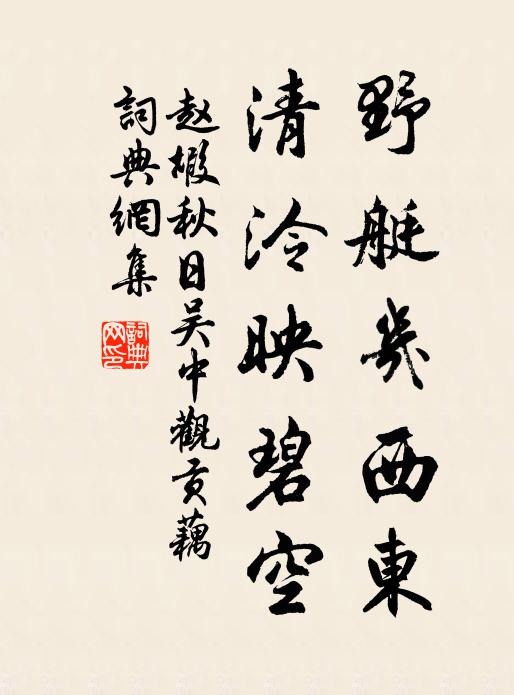 野艇幾西東
清泠映碧空
赵嘏秋日吴中觀贡藕
詞典網集
詞典網印